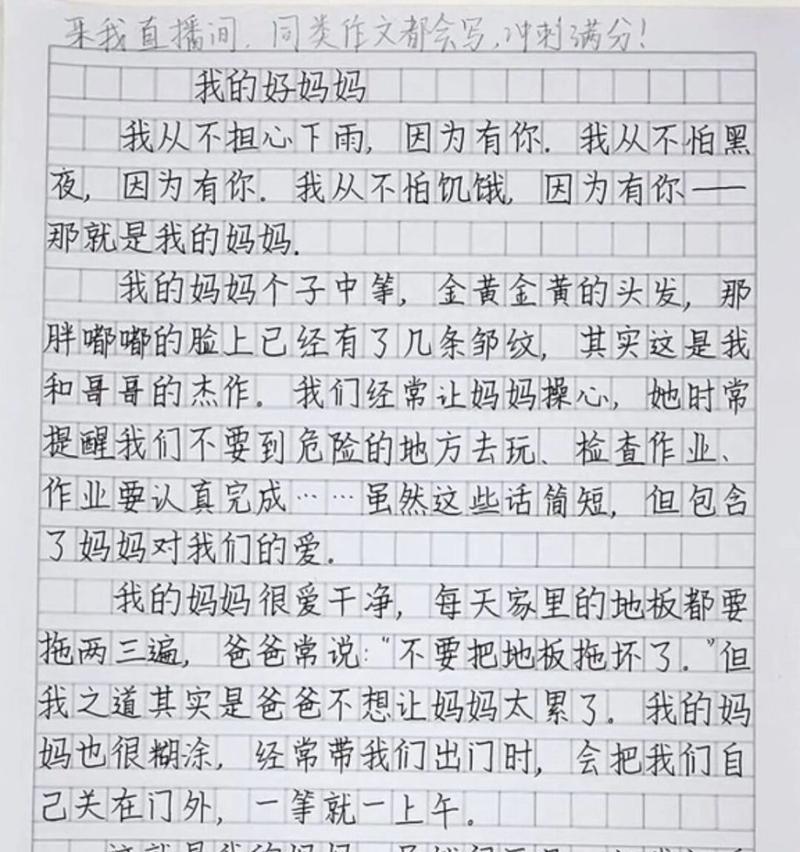 来我直播间,同类作文都会写,冲刺满分!
我的好妈妈
我从不担心下雨,因为有你.我从不怕黑
夜,因为有你.我从不怕饥饿,因为有你——
那就是我的妈妈.
我的妈妈个子中等,金黄金黄的头发,那
胖嘟嘟的脸上已经有了几条邹纹,其实这是我
和哥哥的杰作.我们经常让妈妈操心,她时常
提醒我们不要到危险的地方去玩、检查作业、
作业要认真完成……虽然这些话简短,但包含
了妈妈对我们的爱.
我的妈妈很爱干净,每天家里的地板都要
拖两三遍,爸爸常说:“不要把地板拖坏了.”但
我之道其实是爸爸不想让妈妈太累了。我的妈
妈也很糊涂,经常带我们出门时,会把我们自
己关在门外,一等就一上午。
这就是我的妈妈